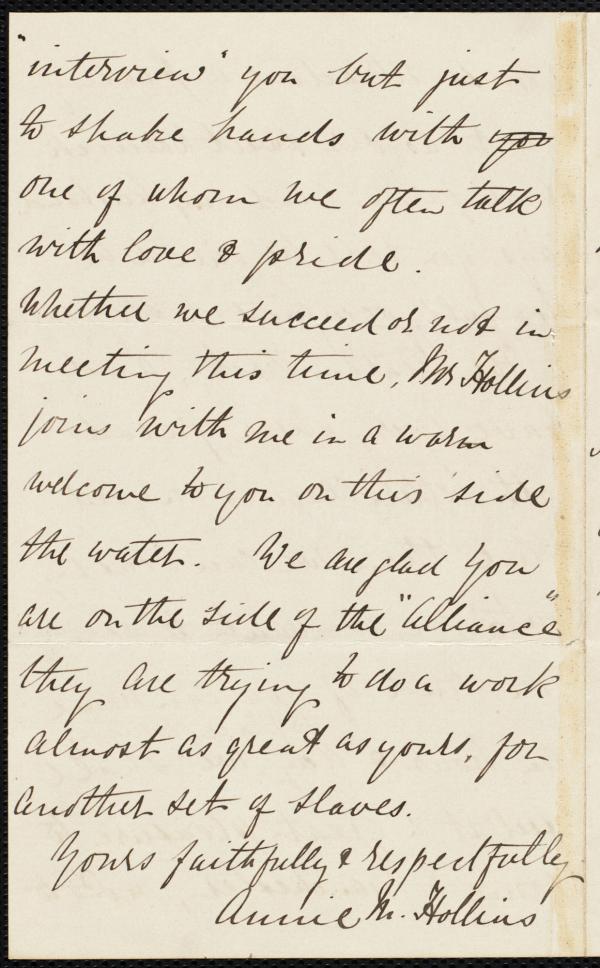 "interview" you but just
to shake hands with you
one of whom we often talk
with love & pride.
Whether we succeed or not in
meeting this time, Mr Hollins
joins with me in a warm
welcome to you on this side
the water. We are glad you
are on the side of the "Alliance"
they are trying to do a work
almost as great as yours, for
another set of slaves.
Yours faithfully & respectfully
Annie M. Hollins